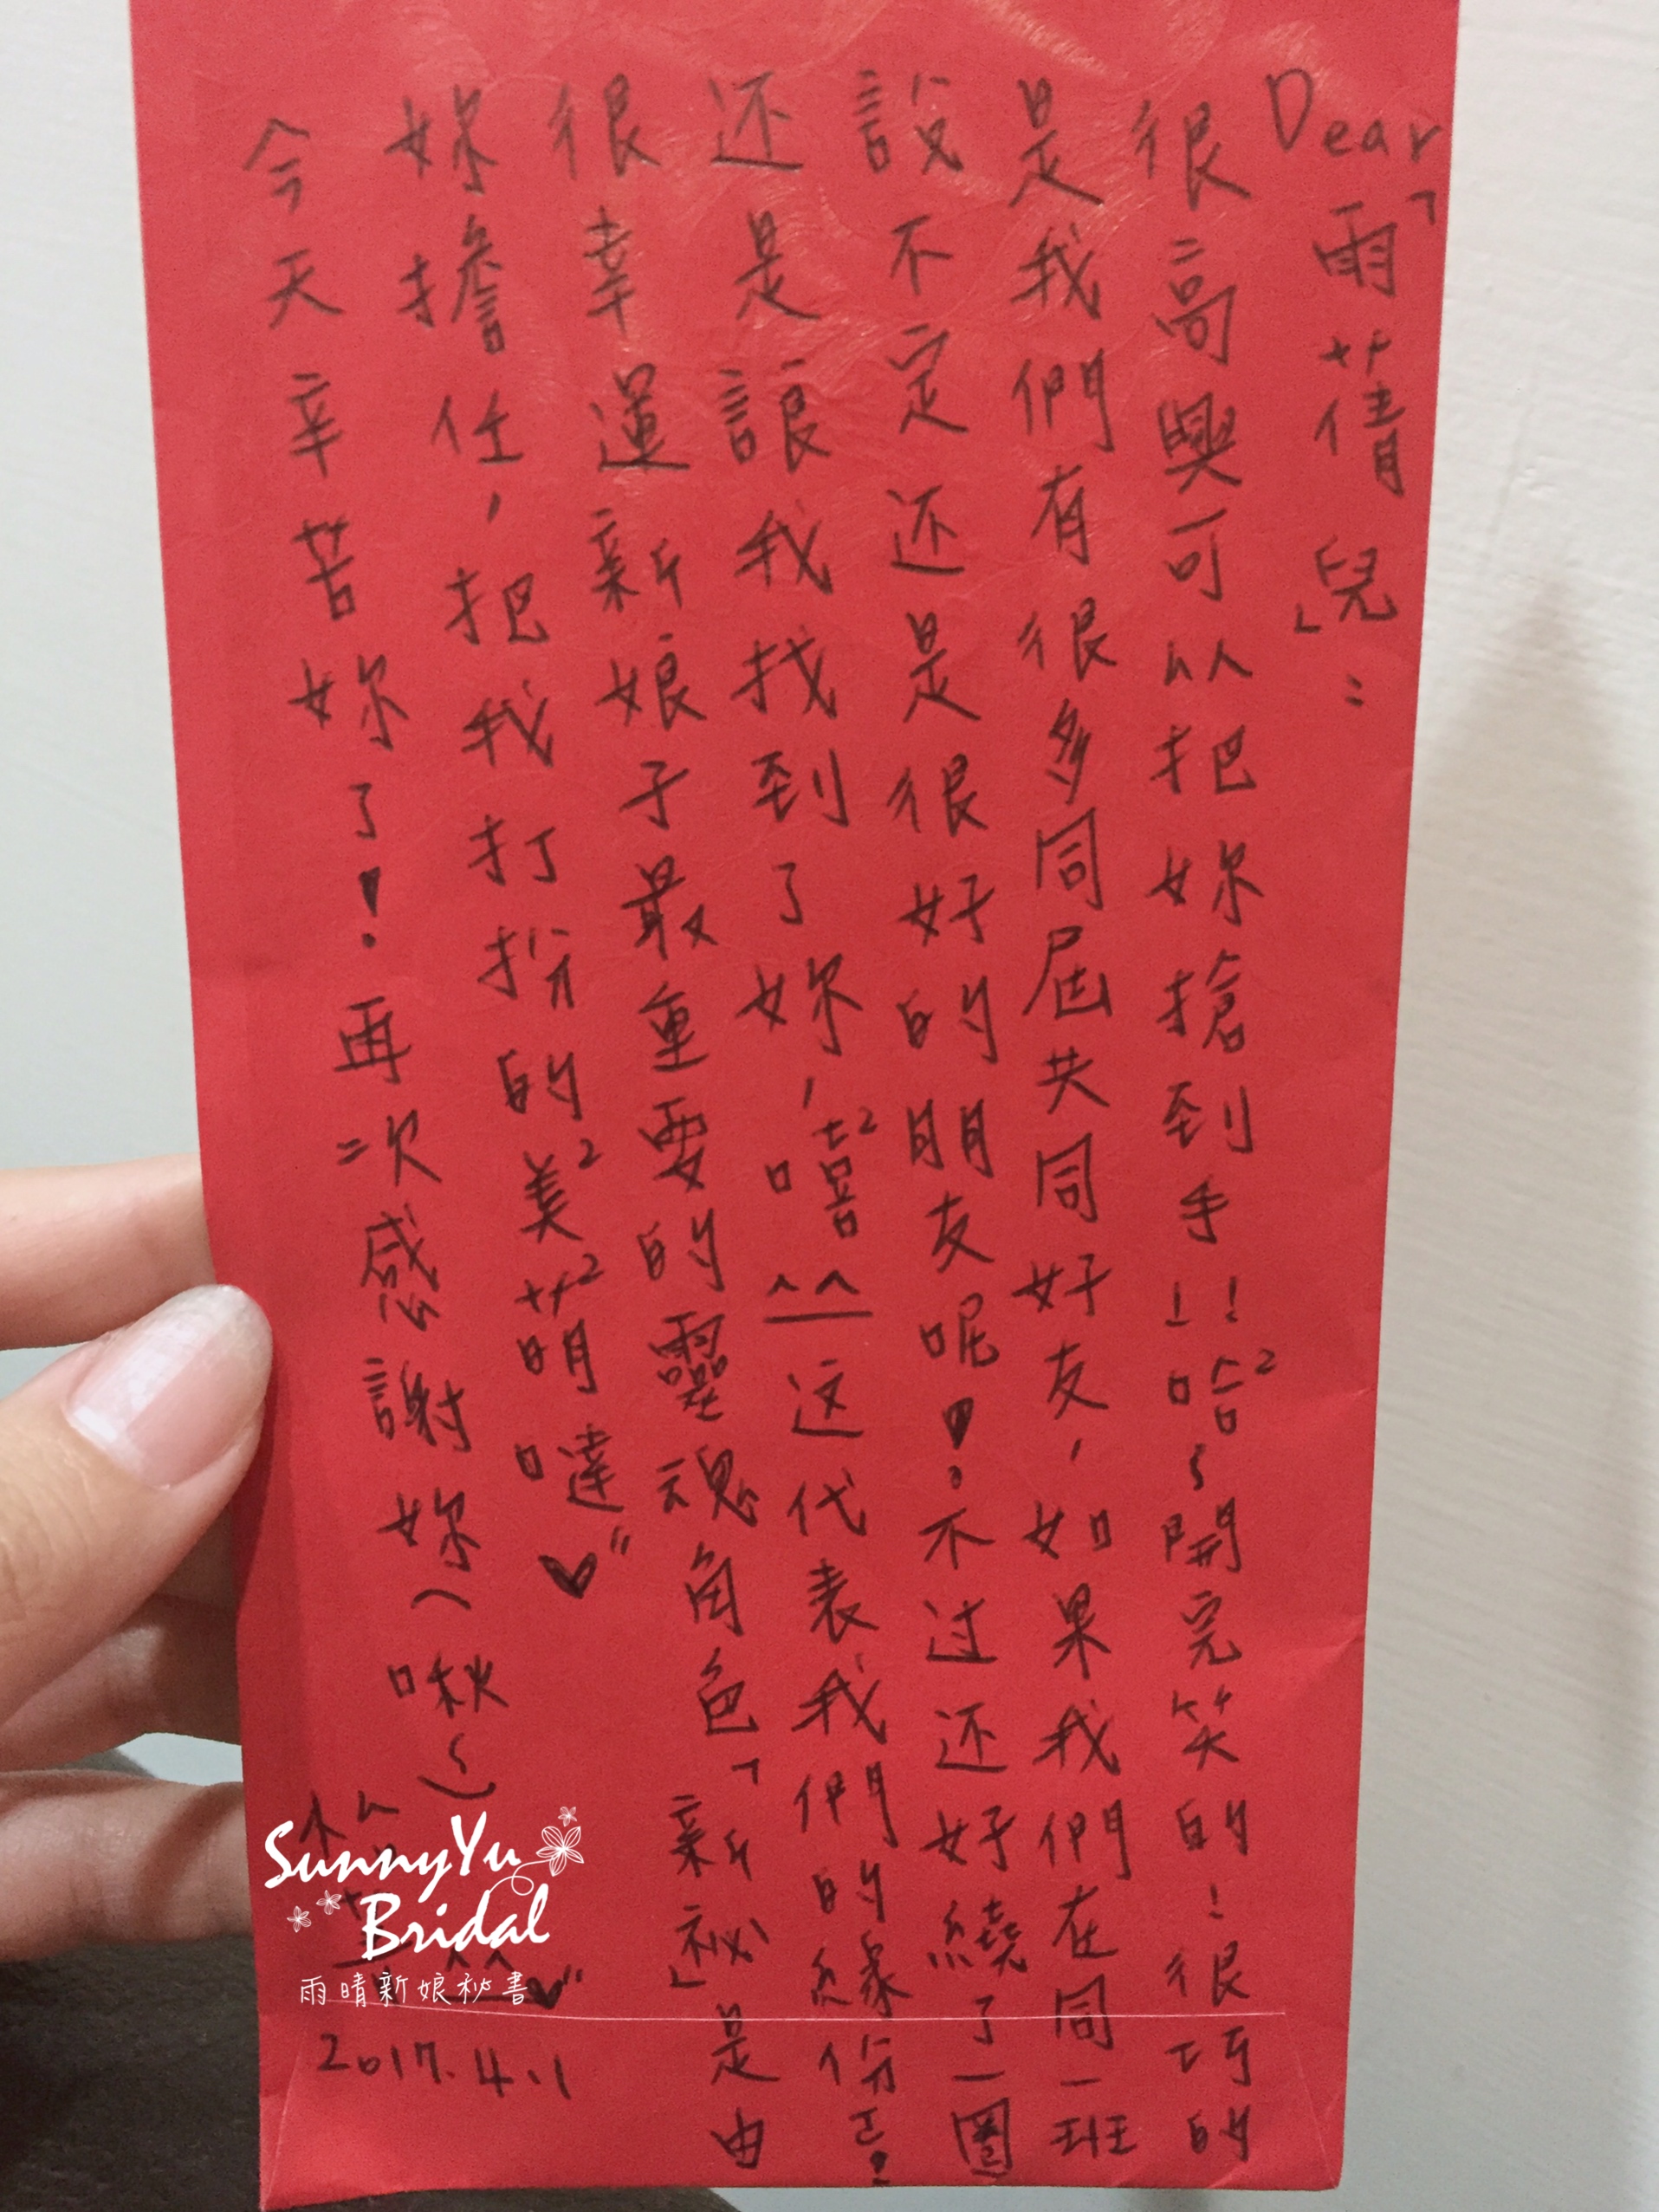 Dear「雨蒨兒」：
很高興可以把妳搶到手!!哈²~開完笑的!很巧的
是我們有很多同屆共同好友，如果我們在同一班
說不定还是很好的朋友呢!。不过还好繞了一圈
还是讓我找到了妳，嘻²^^这代表我們的緣份!
很幸運新娘子最重要的靈魂角色「新祕」是由
妳擔任，把我打扮的美²萌²噠♥"
今天辛苦妳了!再次感謝妳(啾~)
2017.4.1
SunnyYu
Bridal
雨晴新娘秘書